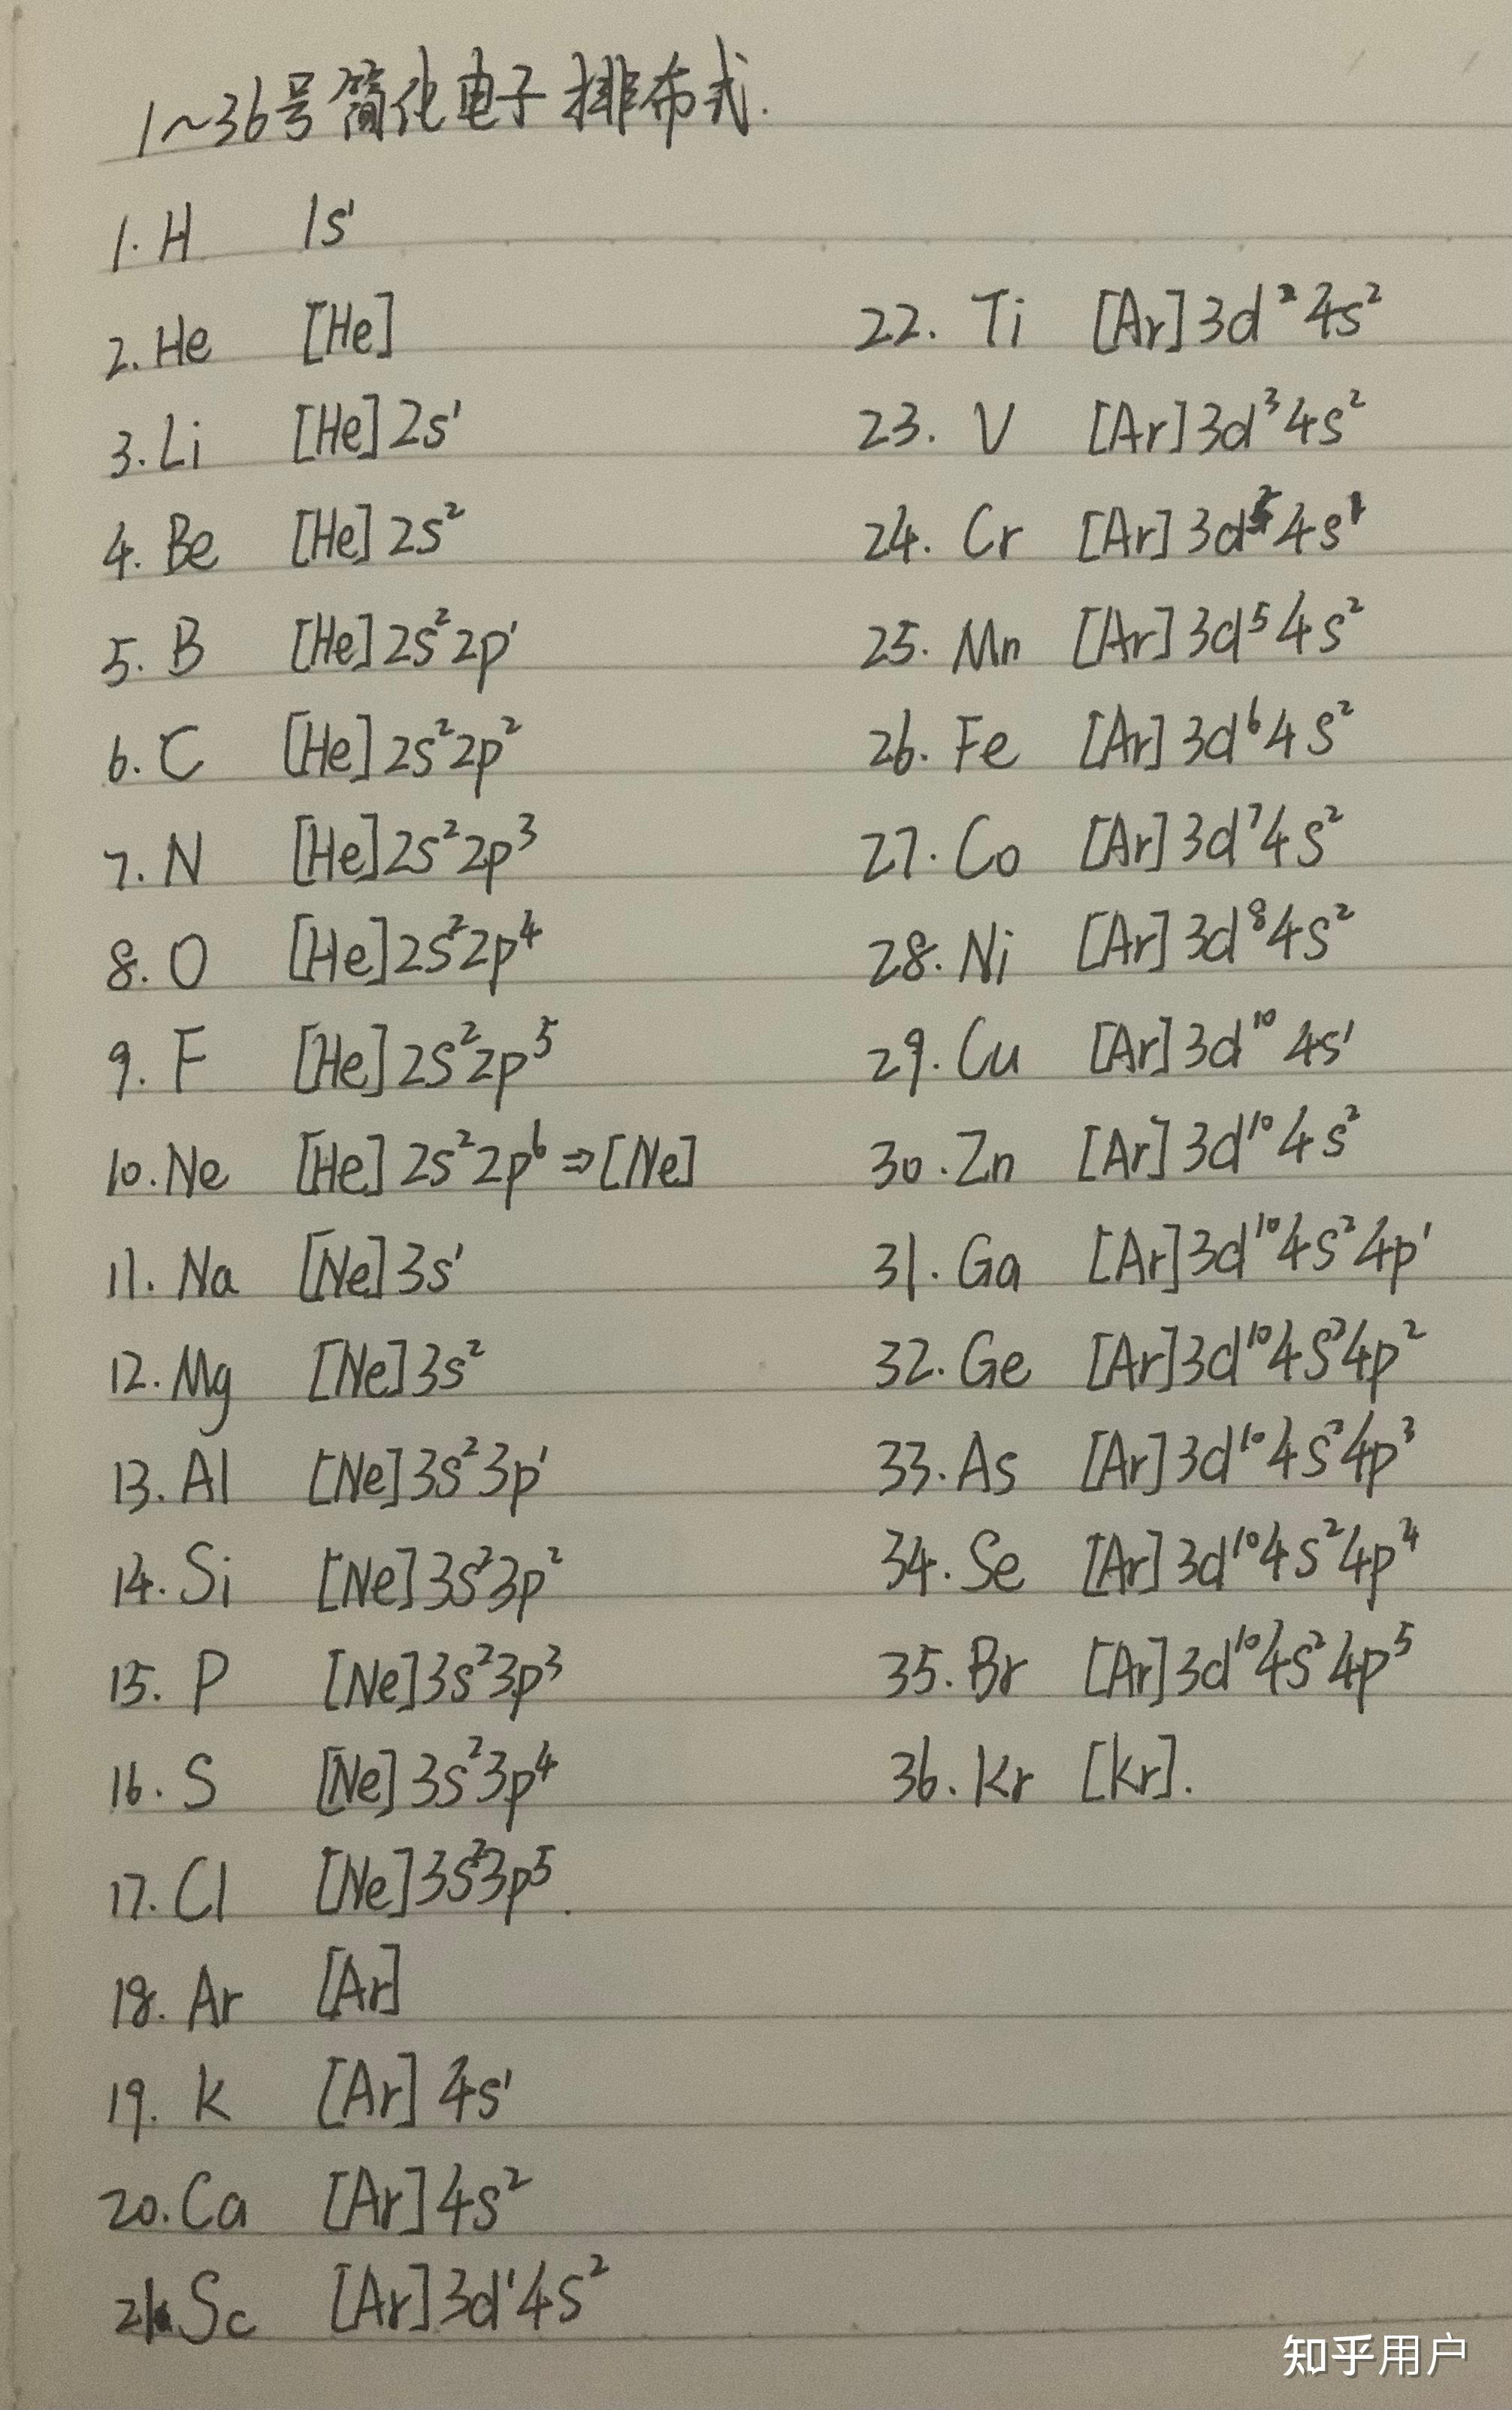 1~36号简化电子排布式.
1. H 1s¹
2. He [He]
3. Li [He]2s¹
4. Be [He]2s²
5. B [He]2s²2p¹
6. C [He]2s²2p²
7. N [He]2s²2p³
8. O [He]2s²2p⁴
9. F [He]2s²2p⁵
10. Ne [He]2s²2p⁶⇒[Ne]
11. Na [Ne]3s¹
12. Mg [Ne]3s²
13. Al [Ne]3s²3p¹
14. Si [Ne]3s²3p²
15. P [Ne]3s²3p³
16. S [Ne]3s²3p⁴
17. Cl [Ne]3s²3p⁵.
18. Ar [Ar]
19. K [Ar]4s¹
20. Ca [Ar]4s²
21. Sc [Ar]3d¹4s²
22. Ti [Ar]3d²4s²
23. V [Ar]3d³4s²
24. Cr [Ar]3d⁵4s¹
25. Mn [Ar]3d⁵4s²
26. Fe [Ar]3d⁶4s²
27. Co [Ar]3d⁷4s²
28. Ni [Ar]3d⁸4s²
29. Cu [Ar]3d¹⁰4s¹
30. Zn [Ar]3d¹⁰4s²
31. Ga [Ar]3d¹⁰4s²4p¹
32. Ge [Ar]3d¹⁰4s²4p²
33. As [Ar]3d¹⁰4s²4p³
34. Se [Ar]3d¹⁰4s²4p⁴
35. Br [Ar]3d¹⁰4s²4p⁵
36. Kr [Kr].
知乎用户